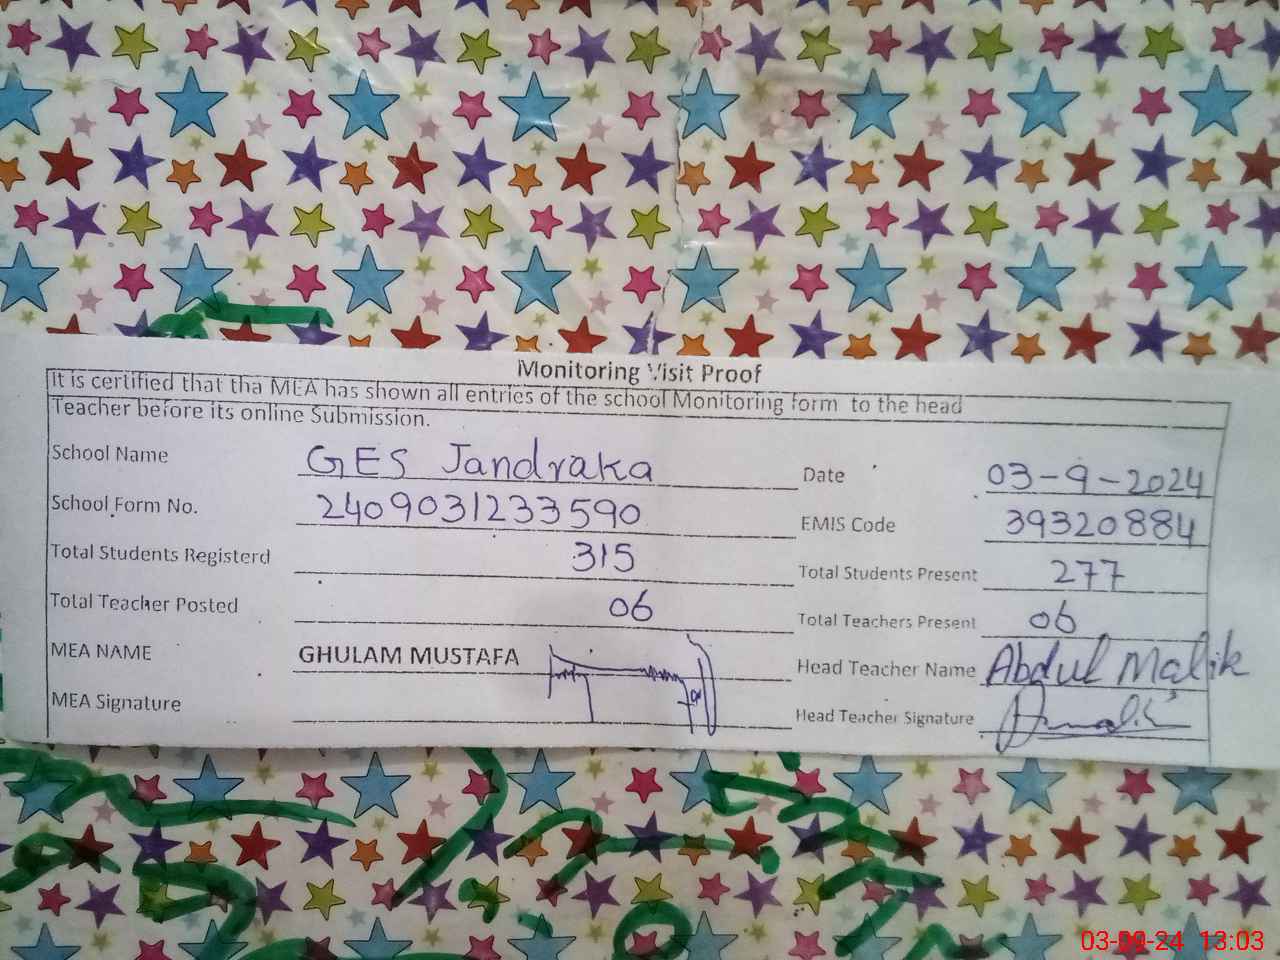 Monitoring Visit Proof
It is certified that tha MEA has shown all entries of the school Monitoring form to the head
Teacher before its online Submission.
School Name GES Jandraka Date 03-9-2024
School Form No. 2409031233590 EMIS Code 39320884
Total Students Registerd 315 Total Students Present 277
Total Teacher Posted 06 Total Teachers Present 06
MEA NAME GHULAM MUSTAFA Head Teacher Name Abdul Malik
MEA Signature Head Teacher Signature
03-09-24 13:03